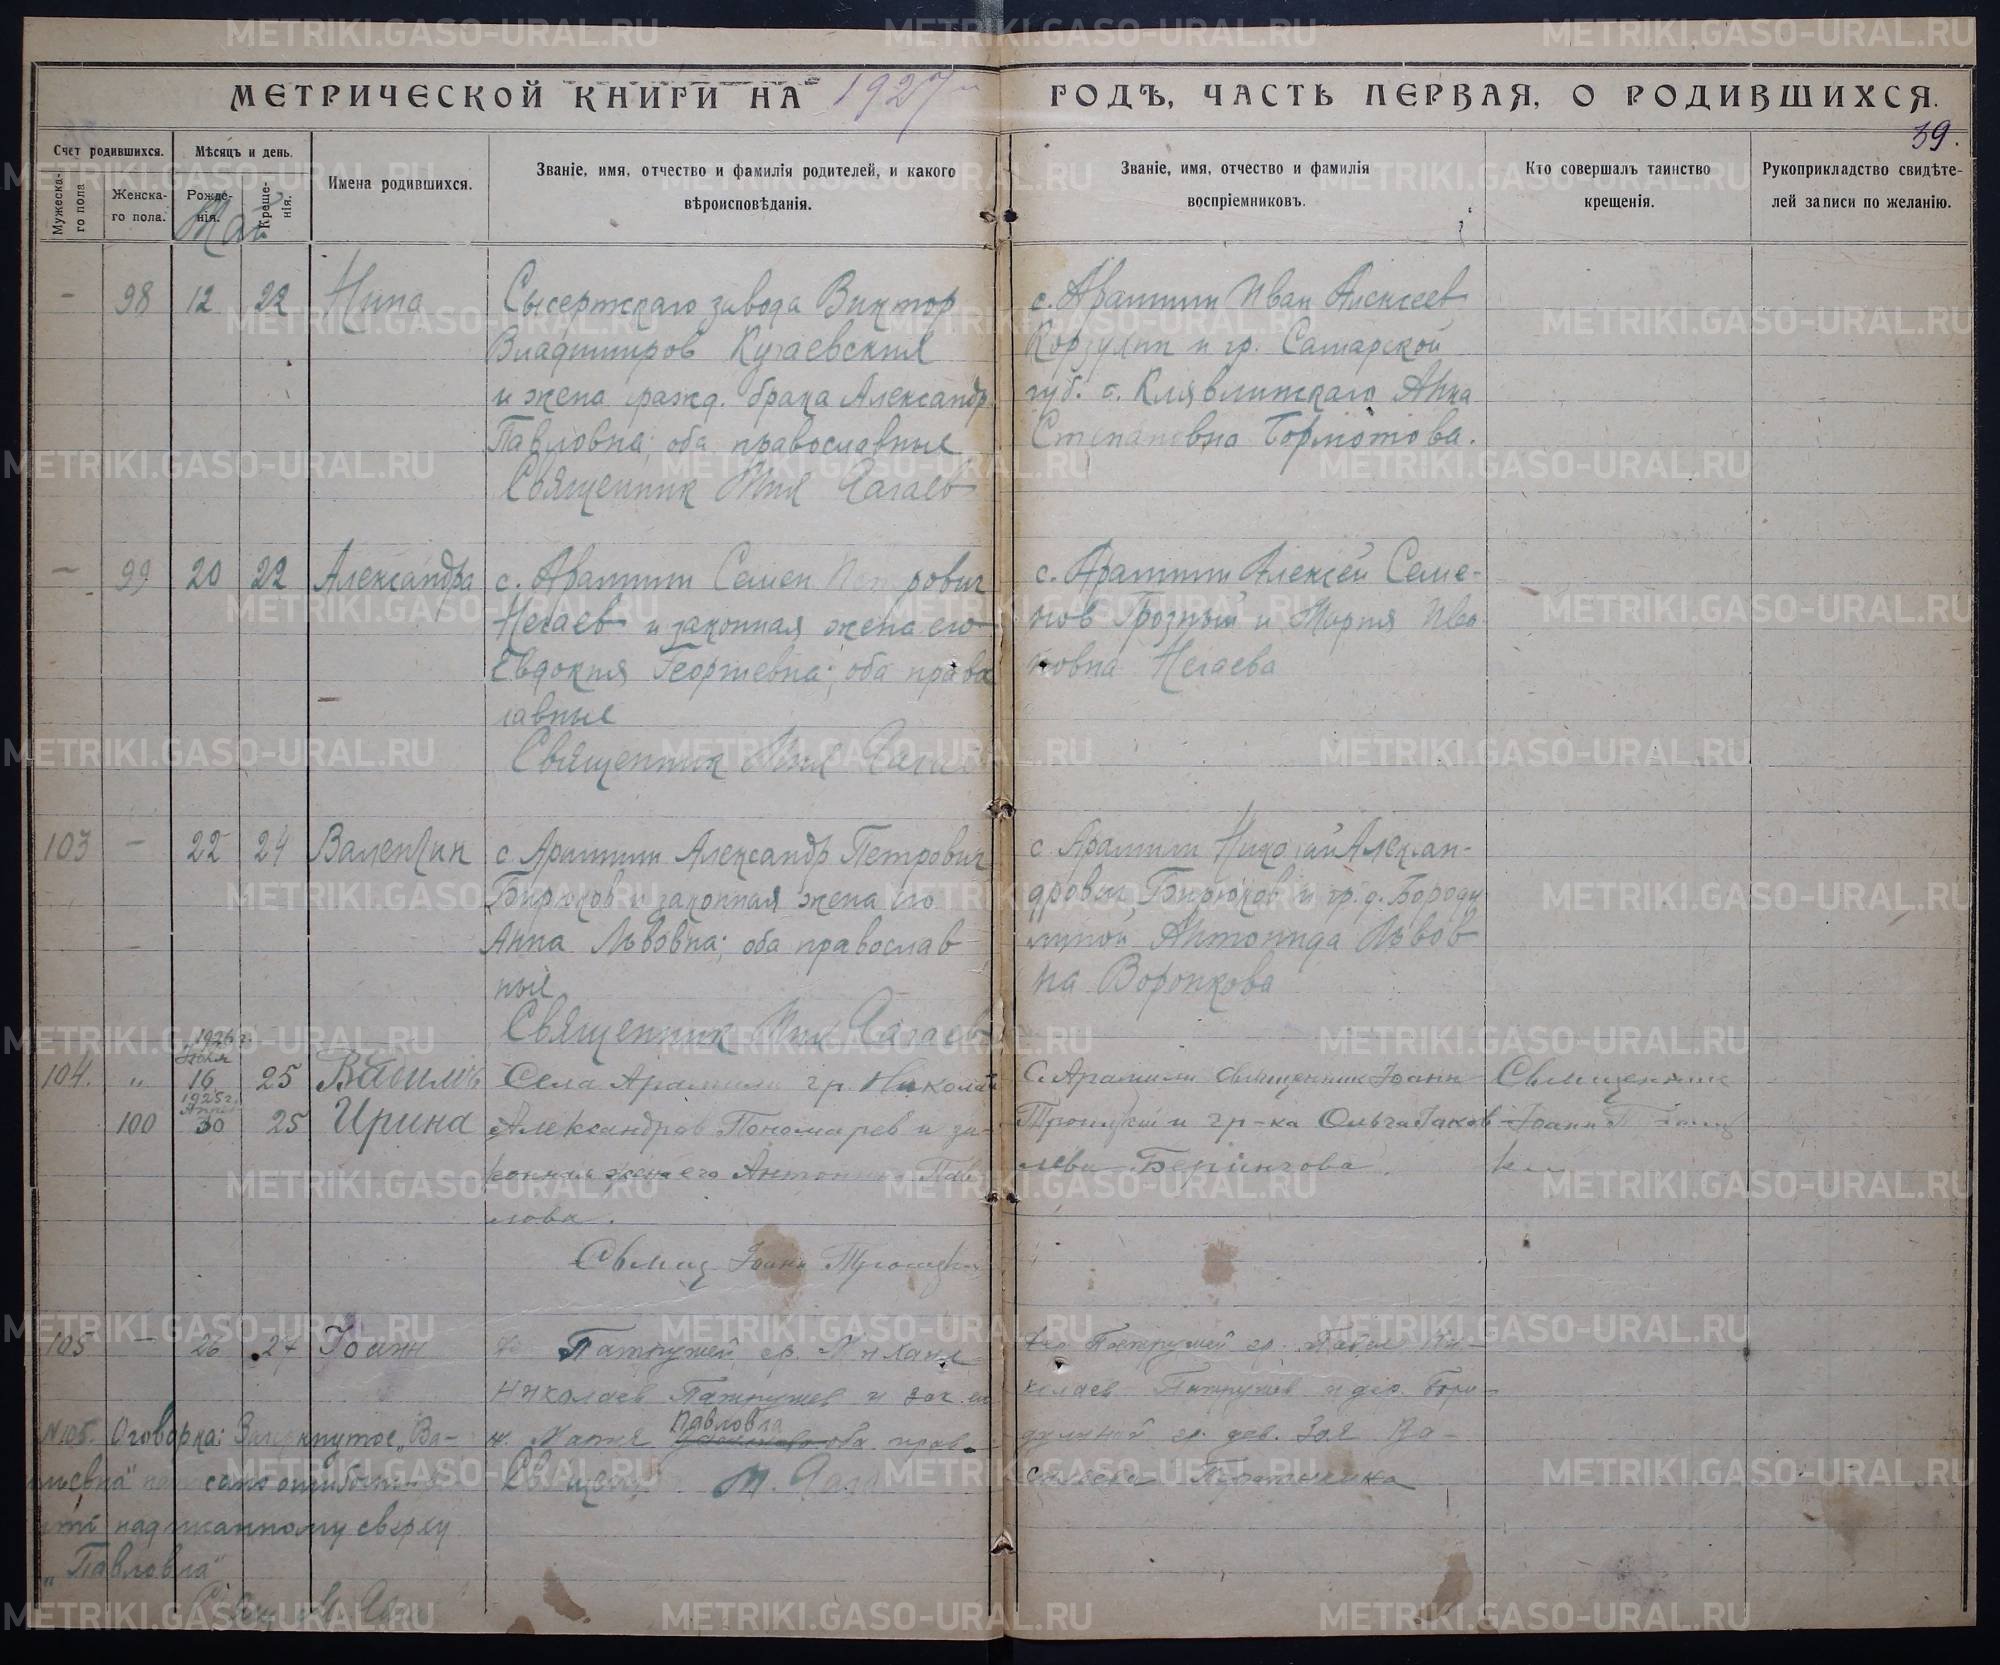 МЕТРИЧЕСКОЙ КНИГИ НА 1927 ГОДЪ, ЧАСТЬ ПЕРВАЯ, О РОДИВШИХСЯ.
39.
Счет родившихся.
Мужеска-
го пола
Женска-
го пола.
Мѣсяцъ и день.
Рожде-
нія.
Креще-
нія.
Имена родившихся.
Званіе, имя, отчество и фамилія родителей, и какого
вѣроисповѣданія.
Званіе, имя, отчество и фамилія
воспріемниковъ.
Кто совершалъ таинство
крещенія.
Рукоприкладство свидѣте-
лей записи по желанію.
Май
— 98 12 22 Нина
Сысертскаго завода Виктор
Владимиров
и жена гражд. брака Александр
Павловна; оба православные
Священник
с. Арамили Иван Алексеев
Корзухин и гр. Самарской
губ. с. Клявлинскаго Анна
Степановна Бормотова.
— 99 20 22 Александра
с. Арамили Семен Петрович
и законная жена его
Евдокия Георгиевна; оба право
славные
Священник
с. Арамили Алексей Семе-
нов Грозный и Мария Ива
новна
103 — 22 24 Валентин
с. Арамили Александр Петрович
Бирюков и законная жена его
Анна Львовна; оба православ
ные
Священник
с. Арамили Николай Алексан-
дрович Бирюков и гр. д. Бороду
линой Антонида Львов
на Воронкова
104. " 1926 г. 16 25 Василий
100 1925 г. Апрель 30 25 Ирина
Села Арамили гр. Николай
Александров Пономарев и за-
конная жена его Антонина Пав
лова.
Священ. Иоанн Троицкий
С. Арамили священник Иоанн
Троицкий и гр-ка Ольга Иаков
лева
Священник
Иоанн
105 — 26 27 Иоанн
Патрушей гр. Михаил
Николаев Патрушев и зак. его
ж. Мария Павловна оба прав.
Священ
дер. Патрушей гр. Павел Ни-
колаев Патрушев и дер. Боро-
дулиной гр. дев. Зоя Ва-
сильева
№105. Оговорка: Зачеркнутое „Ва-
сильевна" написано ошибочно
надписанному сверху
„Павловна"
Свящ.
METRIKI.GASO-URAL.RU